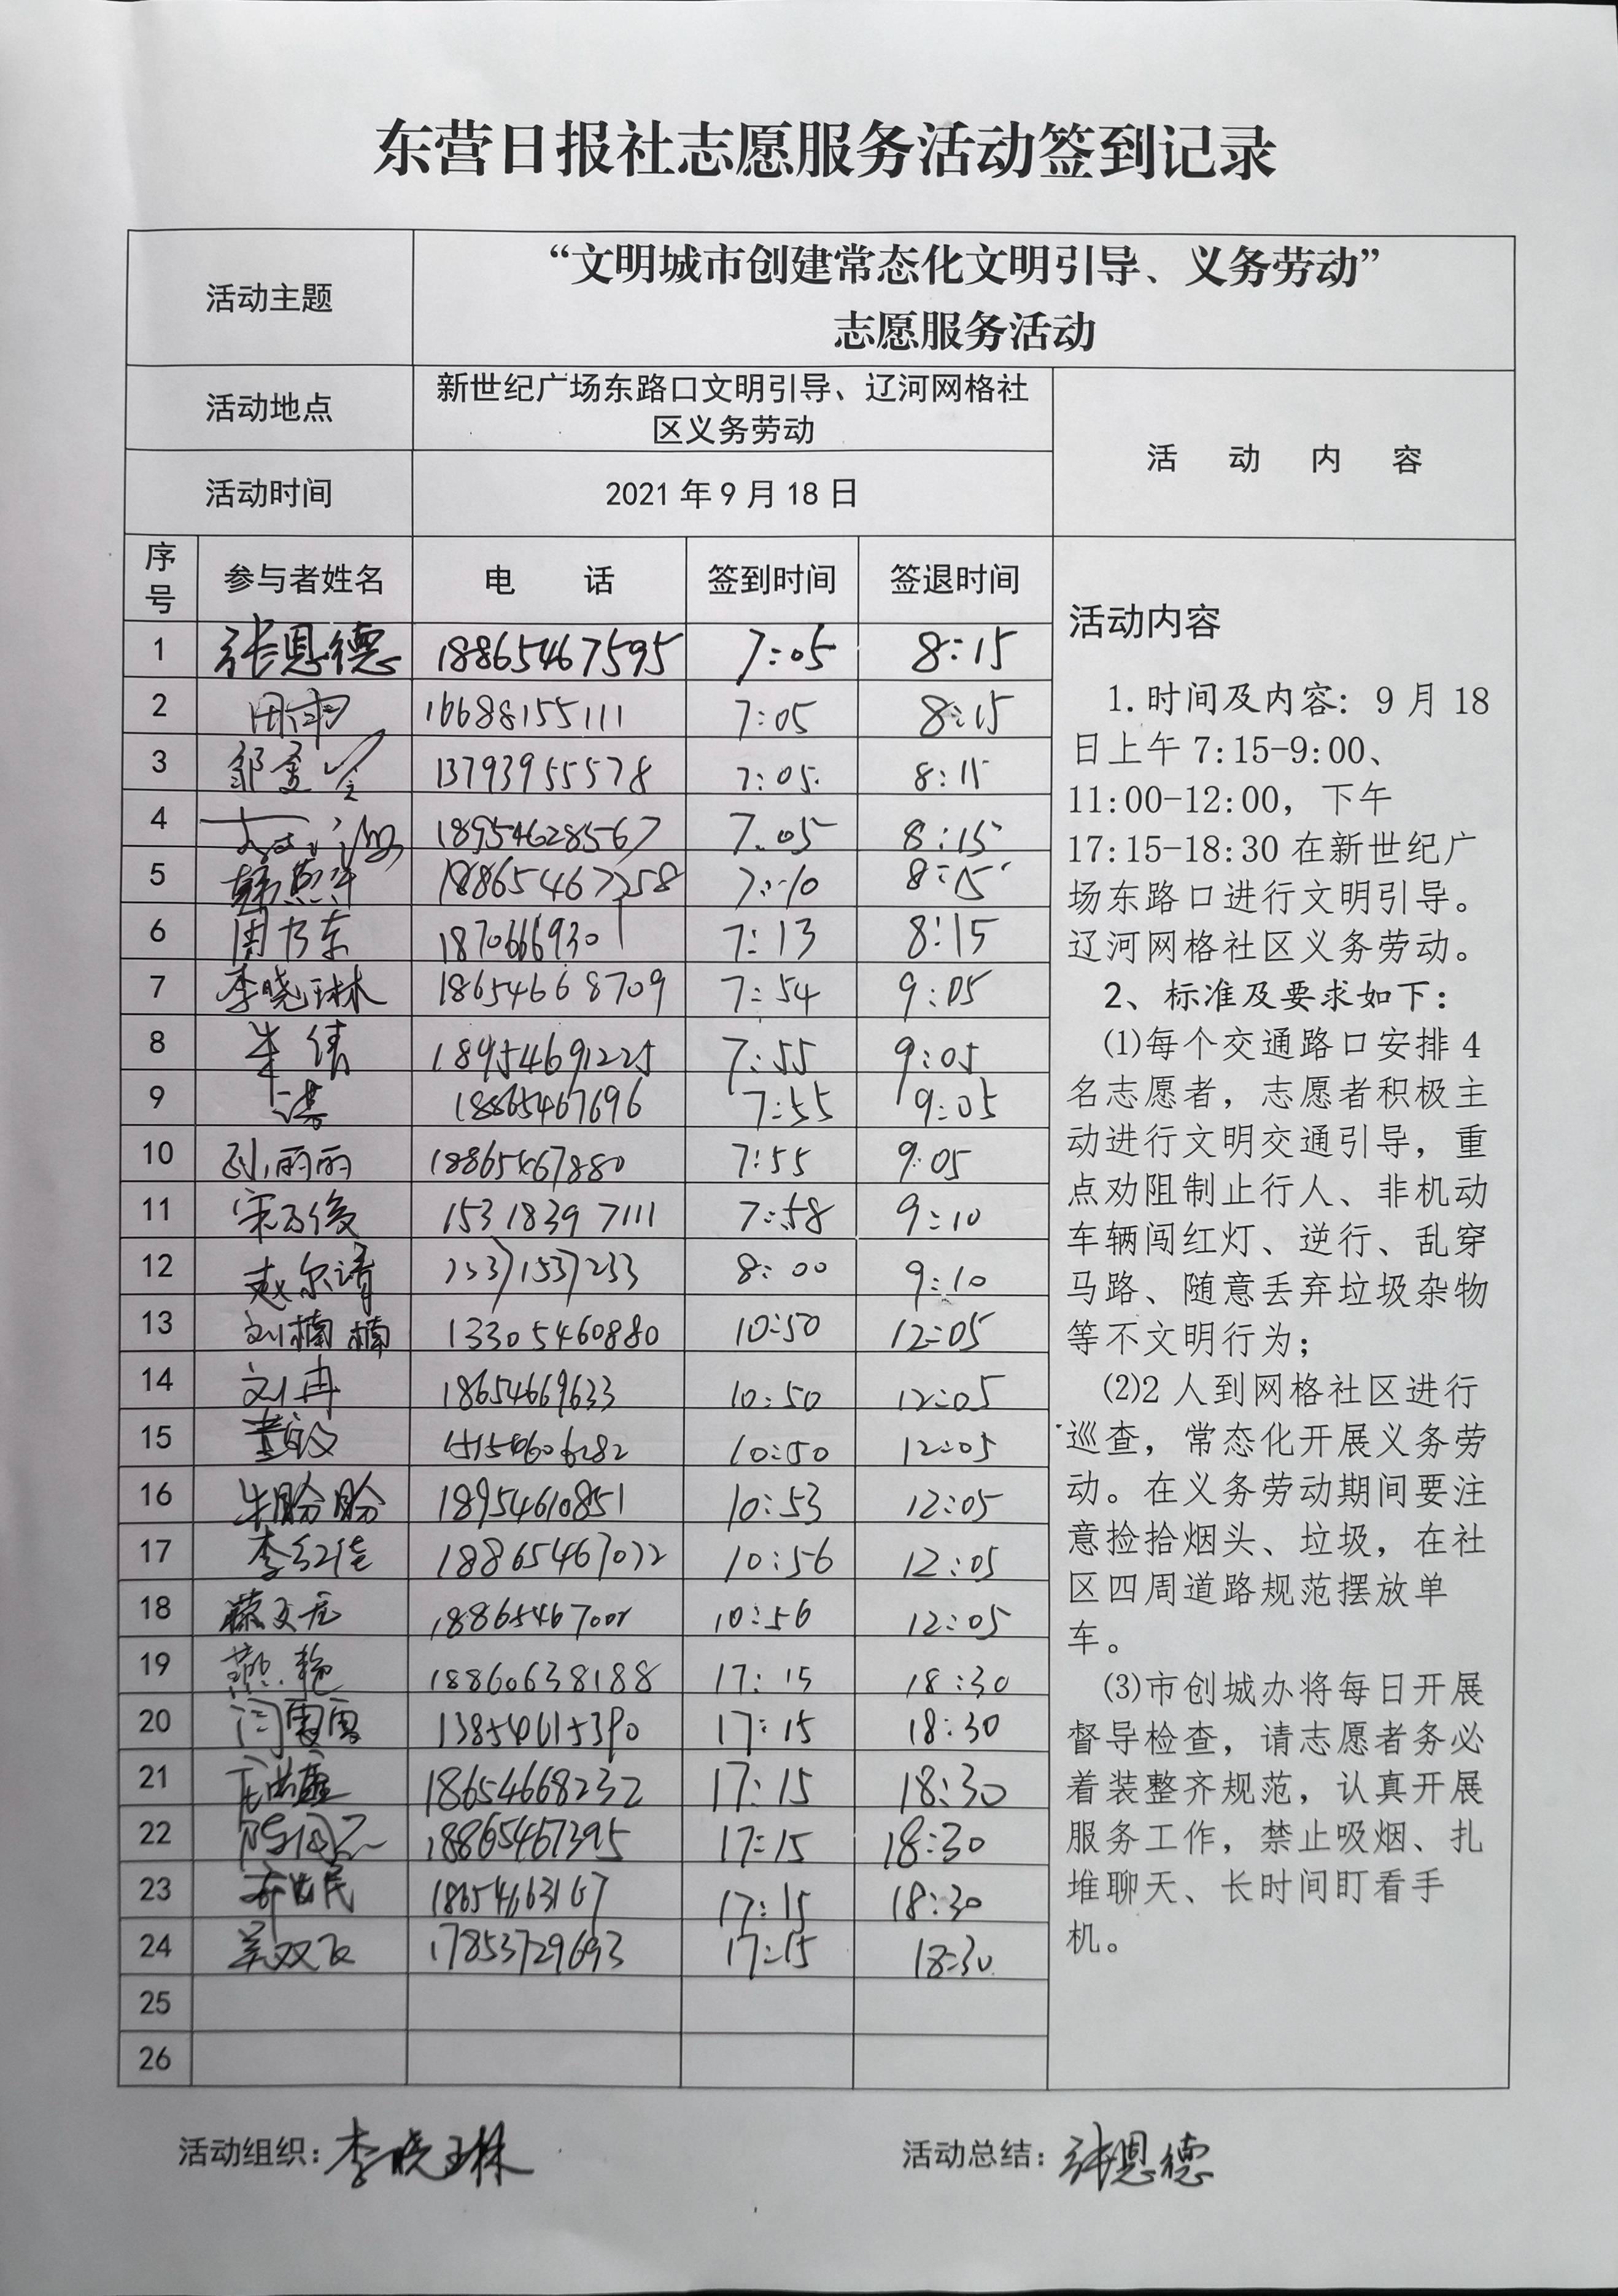 东营日报社志愿服务活动签到记录
活动主题
“文明城市创建常态化文明引导、义务劳动”
志愿服务活动
活动地点
新世纪广场东路口文明引导、辽河网格社
区义务劳动
活动时间
2021年9月18日
活 动 内 容
序号 参与者姓名 电 话 签到时间 签退时间
1 张恩德 18865467595 7:05 8:15
2 周翔 16688155111 7:05 8:15
3 13793955578 7:05 8:15
4 18954628567 7:05 8:15
5 18865467258 7:10 8:15
6 周方东 18706669301 7:13 8:15
7 李晓琳 18654668709 7:54 9:05
8 朱倩 18954691225 7:55 9:05
9 18865467696 7:55 9:05
10 孙丽丽 18865467880 7:55 9:05
11 15318397111 7:58 9:10
12 赵尔靖 15371537233 8:00 9:10
13 刘楠楠 13305460880 10:50 12:05
14 刘冉 18654669633 10:50 12:05
15 董敏 15154606282 10:50 12:05
16 牛盼盼 18954610851 10:53 12:05
17 李红佳 18865467072 10:56 12:05
18 10:56 12:05
19 燕艳 18860638188 17:15 18:30
20 闫雪雪 13854615390 17:15 18:30
21 18654668232 17:15 18:30
22 18865467395 17:15 18:30
23 18654663167 17:15 18:30
24 17853729693 17:15 18:30
25
26
活动内容
1.时间及内容：9月18
日上午7:15-9:00、
11:00-12:00，下午
17:15-18:30在新世纪广
场东路口进行文明引导。
辽河网格社区义务劳动。
2、标准及要求如下：
⑴每个交通路口安排4
名志愿者，志愿者积极主
动进行文明交通引导，重
点劝阻制止行人、非机动
车辆闯红灯、逆行、乱穿
马路、随意丢弃垃圾杂物
等不文明行为；
⑵2人到网格社区进行
巡查，常态化开展义务劳
动。在义务劳动期间要注
意捡拾烟头、垃圾，在社
区四周道路规范摆放单
车。
⑶市创城办将每日开展
督导检查，请志愿者务必
着装整齐规范，认真开展
服务工作，禁止吸烟、扎
堆聊天、长时间盯看手
机。
活动组织：李晓琳
活动总结：张恩德